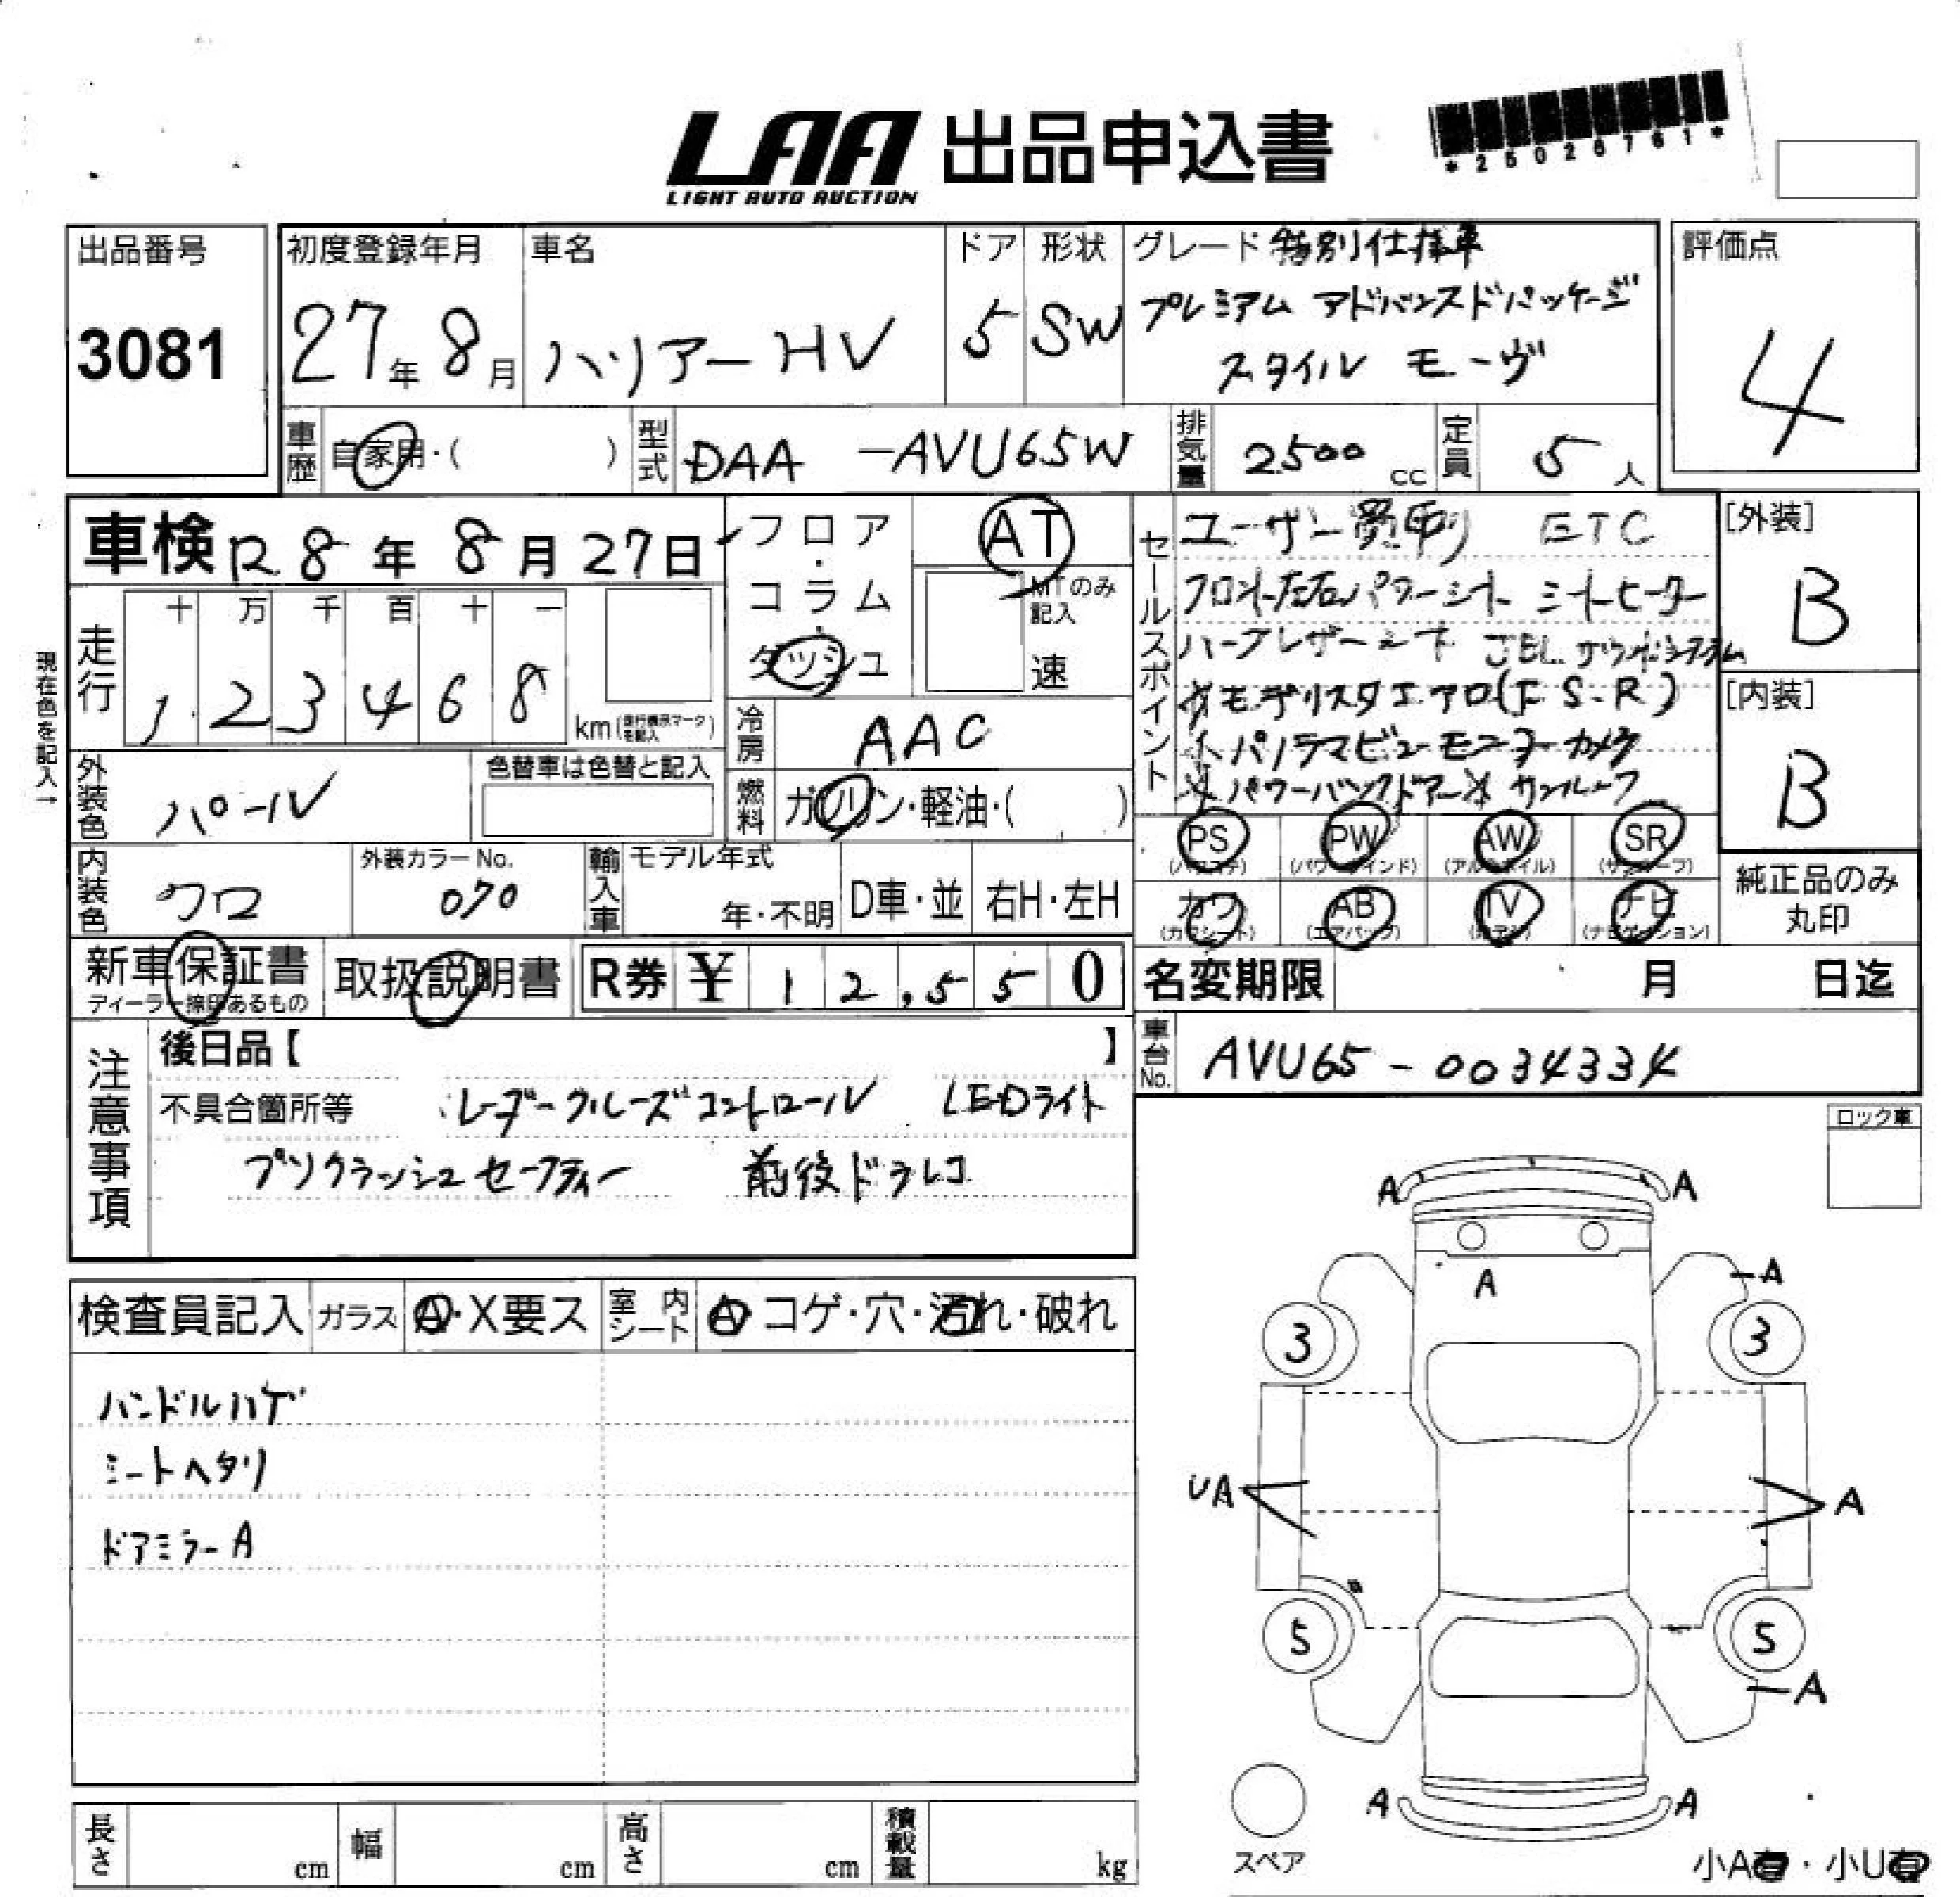 LAA 出品申込書
LIGHT AUTO AUCTION
*25026761*
出品番号
3081
初度登録年月
27年 8月
車名
ハリアー HV
ドア
5
形状
SW
グレード 特別仕様車
プレミアム アドバンスドパッケージ
スタイル モーヴ
評価点
4
車歴
自家用・( )
型式
DAA -AVU65W
排気量
2500 cc
定員
5 人
車検 R8年 8月 27日
フロア・コラム・ダッシュ
AT
MTのみ記入
速
現在色を記入→
走行
十 万 千 百 十 一
1 2 3 4 6 8 km
冷房
AAC
外装色
パール
色替車は色替と記入
燃料
ガソリン・軽油・( )
内装色
クロ
外装カラーNo.
070
輸入車
モデル年式
年・不明
D車・並
右H・左H
セールスポイント
ユーザー買取り ETC
フロント左右パワーシート シートヒーター
ハーフレザーシート JBLサウンドシステム
モデリスタエアロ(F.S.R)
パノラマビューモニターカメラ
パワーバックドアー サンルーフ
[外装]
B
[内装]
B
PS PW AW SR
(パワステ) (パワーウインド) (アルミホイル) (サンルーフ)
カワ AB TV ナビ
(カワシート) (エアバック) (地デジ) (ナビゲイション)
純正品のみ
丸印
新車保証書
ディーラー捺印あるもの
取扱説明書
R券 ¥ 12,550
名変期限 月 日迄
車台No.
AVU65-0034334
注意事項
後日品【 】
不具合箇所等 レーダークルーズコントロール LEDライト
プリクラッシュセーフティー 前後ドラレコ
ロック車
検査員記入
ガラス A・X要ス
室内シート A・コゲ・穴・汚れ・破れ
ハンドルハゲ
シートヘタリ
ドアミラーA
A A
A
A
3 3
UA A
5 5
A
A A
スペア
小A有・小U有
長さ cm
幅 cm
高さ cm
積載量 kg